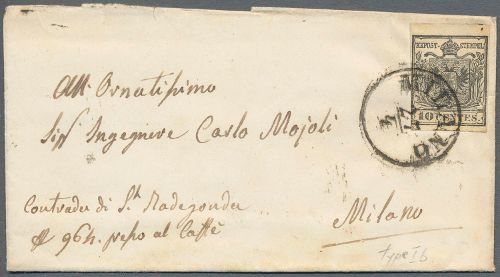 KKPOST-STEMPEL
10 CENTES.
MILANO
All' Ornatissimo
Sigr Ingegnere Carlo Majoli
Contrada di Sta Radegonda
964. presso al Caffè
Milano
type Ib